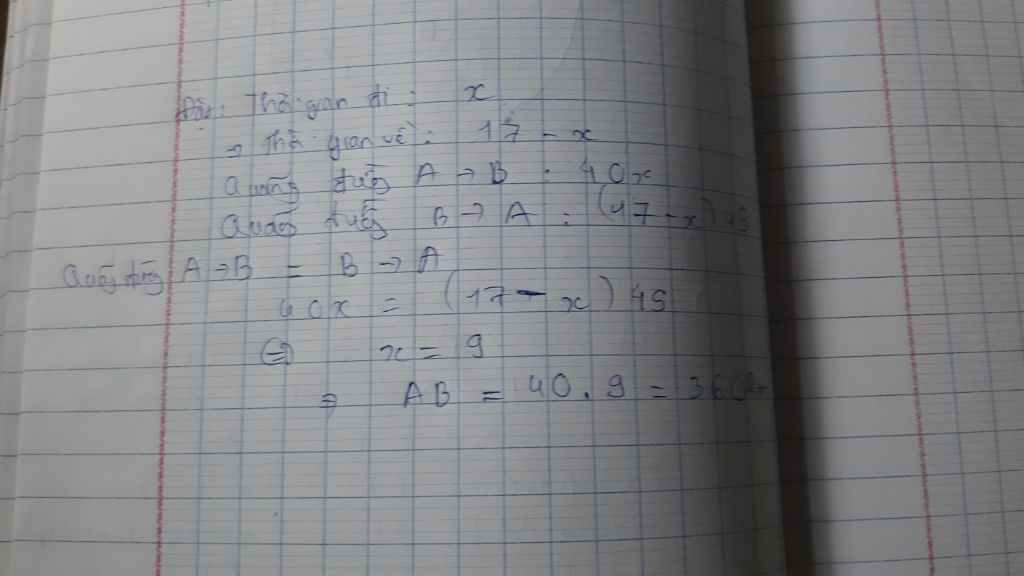 Đặt: Thời gian đi: x
⇒ Thời gian về: 17 - x
Quãng đường A → B : 40x
Quãng đường B → A : (17 - x) 45
Quãng đường A → B = B → A
40x = (17 - x) 45
⇔ x = 9
⇒ AB = 40 . 9 = 360